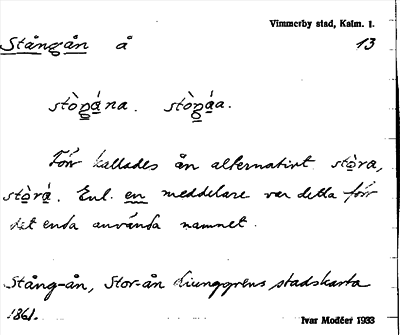 Vimmerby stad, Kalm. l.
Stångån å 13
stòŋána. stòŋáa.
Förr kallades ån alternativt stòra,
stòrá. Enl. en meddelare var detta förr
det enda använda namnet.
Stång-ån, Stor-ån Ljunggrens stadskarta
1861.
Ivar Modéer 1933